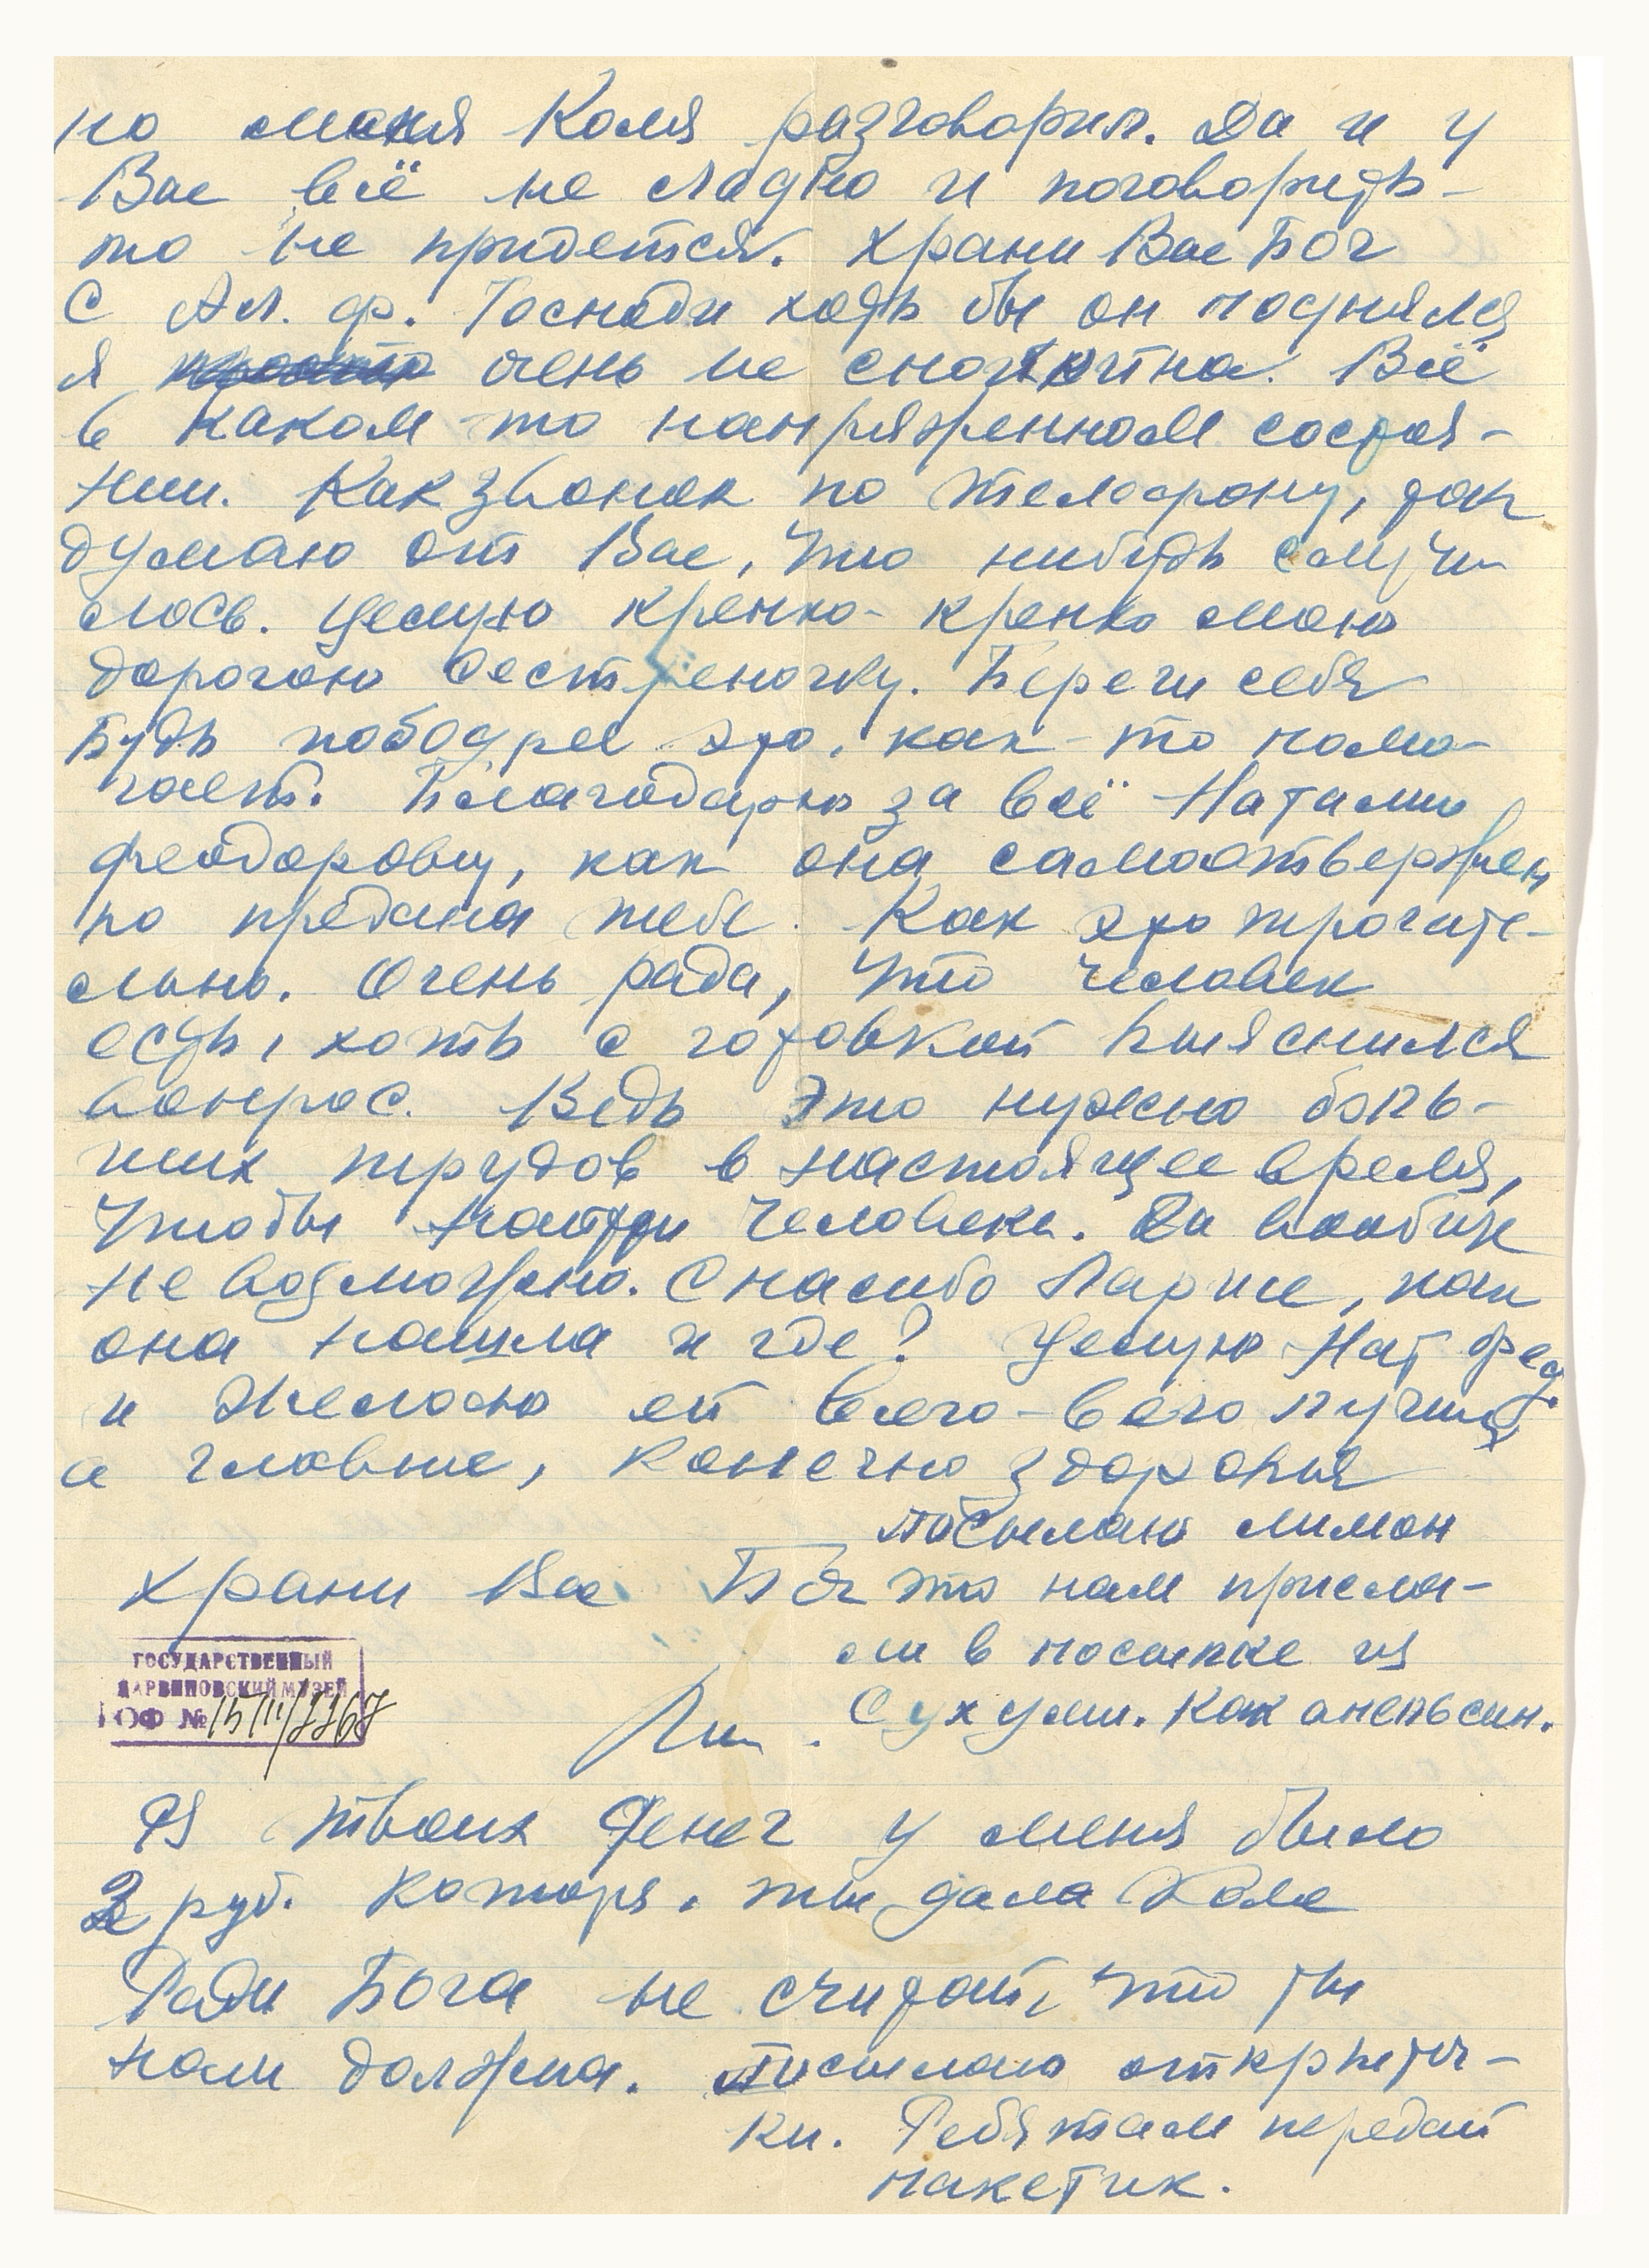 но меня Коля разговорил. Да и у
Вас всё не сладко и поговорить-
то не придется. Храни Вас Бог
с Ал. Ф. Господи хоть бы он поднялся
я очень не спокойна. Всё
в каком-то напряженном состоя-
нии. Как звонок по телефону, так
думаю от Вас, что нибудь случи-
лось. Целую крепко-крепко мою
дорогою сестреночку. Береги себя
Будь пободрее это, как-то помо-
гает. Благодарю за всё Наталию
Феодоровну, как она самоотвержен
но предана тебе. Как это трогате-
льно. Очень рада, что человек
есть, хоть с готовкой выяснился
вопрос. Ведь это нужно боль-
ших трудов в настоящее время,
чтобы найти человека. Да вообще
не возможно. Спасибо Ларисе, как
она нашла и где? Целую Нат Фед.
и желаю ей всего-всего лучшего
а главное, конечно здоровья
посылаю лимон
Храни Вас Бог это нам присла-
ли в посылке из
Сухуми. Как апельсин.
ГОСУДАРСТВЕННЫЙ
ДАРВИНОВСКИЙ МУЗЕЙ
КОФ №
Из твоих денег у меня было
2 руб. которы. ты дала Коле
Ради Бога не считай, что ты
нам должна. Посылаю открыточ-
ки. Ребятам передай
пакетик.